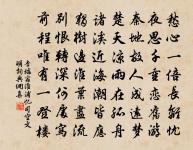 愁心一倍長離憂
夜思千重戀舊遊
秦地故人成遠夢
楚天涼雨在孤舟
諸溪近海潮皆應
獨樹邊淮葉盡流
別恨轉深何處寫
前程唯有一登樓
李端宿淮浦憶司空文
明詞典網集